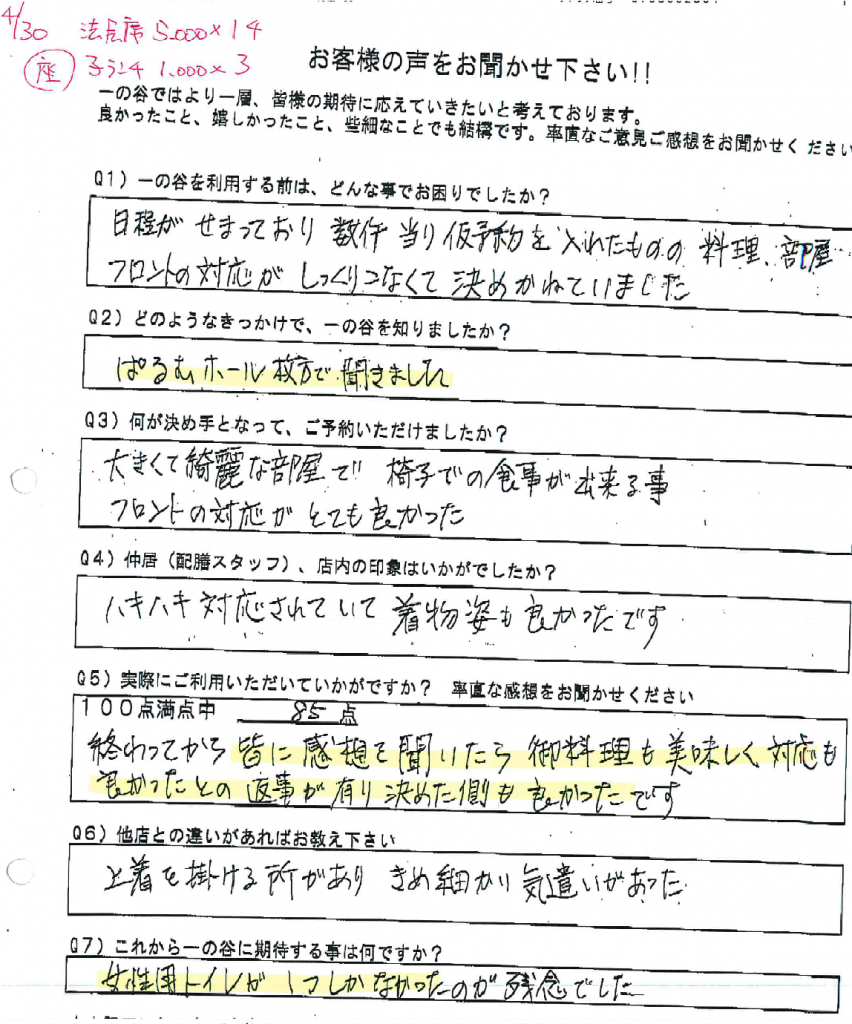 4/30 法居席 5.000×14
座 子ランチ 1.000×3
お客様の声をお聞かせ下さい!!
一の谷ではより一層、皆様の期待に応えていきたいと考えております。
良かったこと、嬉しかったこと、些細なことでも結構です。率直なご意見ご感想をお聞かせください
Q1)一の谷を利用する前は、どんな事でお困りでしたか?
日程がせまっており 数件当り仮予約を入れたものの 料理、部屋
フロントの対応がしっくりこなくて決めかねていました
Q2)どのようなきっかけで、一の谷を知りましたか?
ぱるむホール枚方で聞きました
Q3)何が決め手となって、ご予約いただけましたか?
大きくて綺麗な部屋で 椅子での食事が出来る事
フロントの対応がとても良かった
Q4)仲居(配膳スタッフ)、店内の印象はいかがでしたか?
ハキハキ対応されていて 着物姿も良かったです
Q5)実際にご利用いただいていかがですか? 率直な感想をお聞かせください
100点満点中 85点
終わってから皆に感想を聞いたら御料理も美味しく対応も
良かったとの返事が有り決めた側も良かったです
Q6)他店との違いがあればお教え下さい
上着を掛ける所があり きめ細かい気遣いがあった
Q7)これから一の谷に期待する事は何ですか?
女性用トイレが1つしかなかったのが残念でした